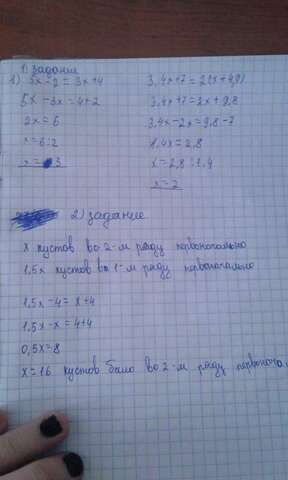 1) Задание
1) 5x - 2 = 3x + 4
5x - 3x = 4 + 2
2x = 6
x = 6:2
x = 3
3,4x + 7 = 2(x + 4,9)
3,4x + 7 = 2x + 9,8
3,4x - 2x = 9,8 - 7
1,4x = 2,8
x = 2,8 : 1,4
x = 2
2) задание
x кустов во 2-м ряду первоначально
1,5x кустов в 1-м ряду первоначально
1,5x - 4 = x + 4
1,5x - x = 4 + 4
0,5x = 8
x = 16 кустов было во 2-м ряду первонача